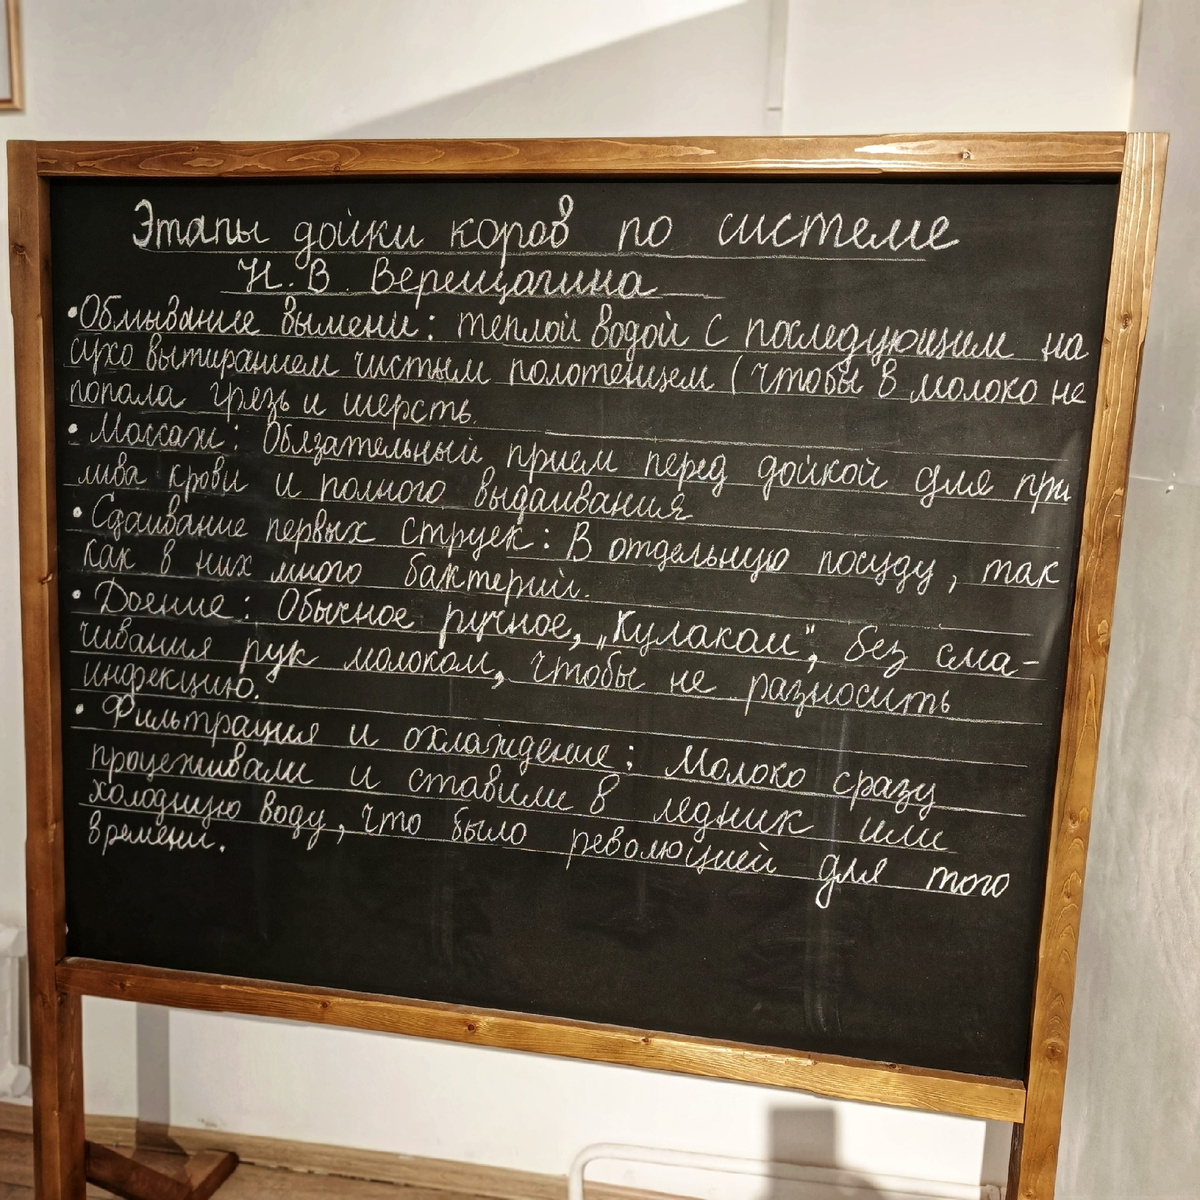 Этапы дойки коров по системе
Н. В. Верещагина
•Обмывание вымени: теплой водой с последующим на
сухо вытиранием чистым полотенцем (чтобы в молоко не
попала грязь и шерсть.
• Массаж: Обязательный прием перед дойкой для при
лива крови и полного выдаивания
• Сдаивание первых струек: В отдельную посуду, так
как в них много бактерий.
• Доение: Обычное ручное, „Кулаком", без сма-
чивания рук молоком, чтобы не разносить
инфекцию.
• Фильтрация и охлаждение: Молоко сразу
процеживали и ставили в ледник или
холодную воду, что было революцией для того
времени.